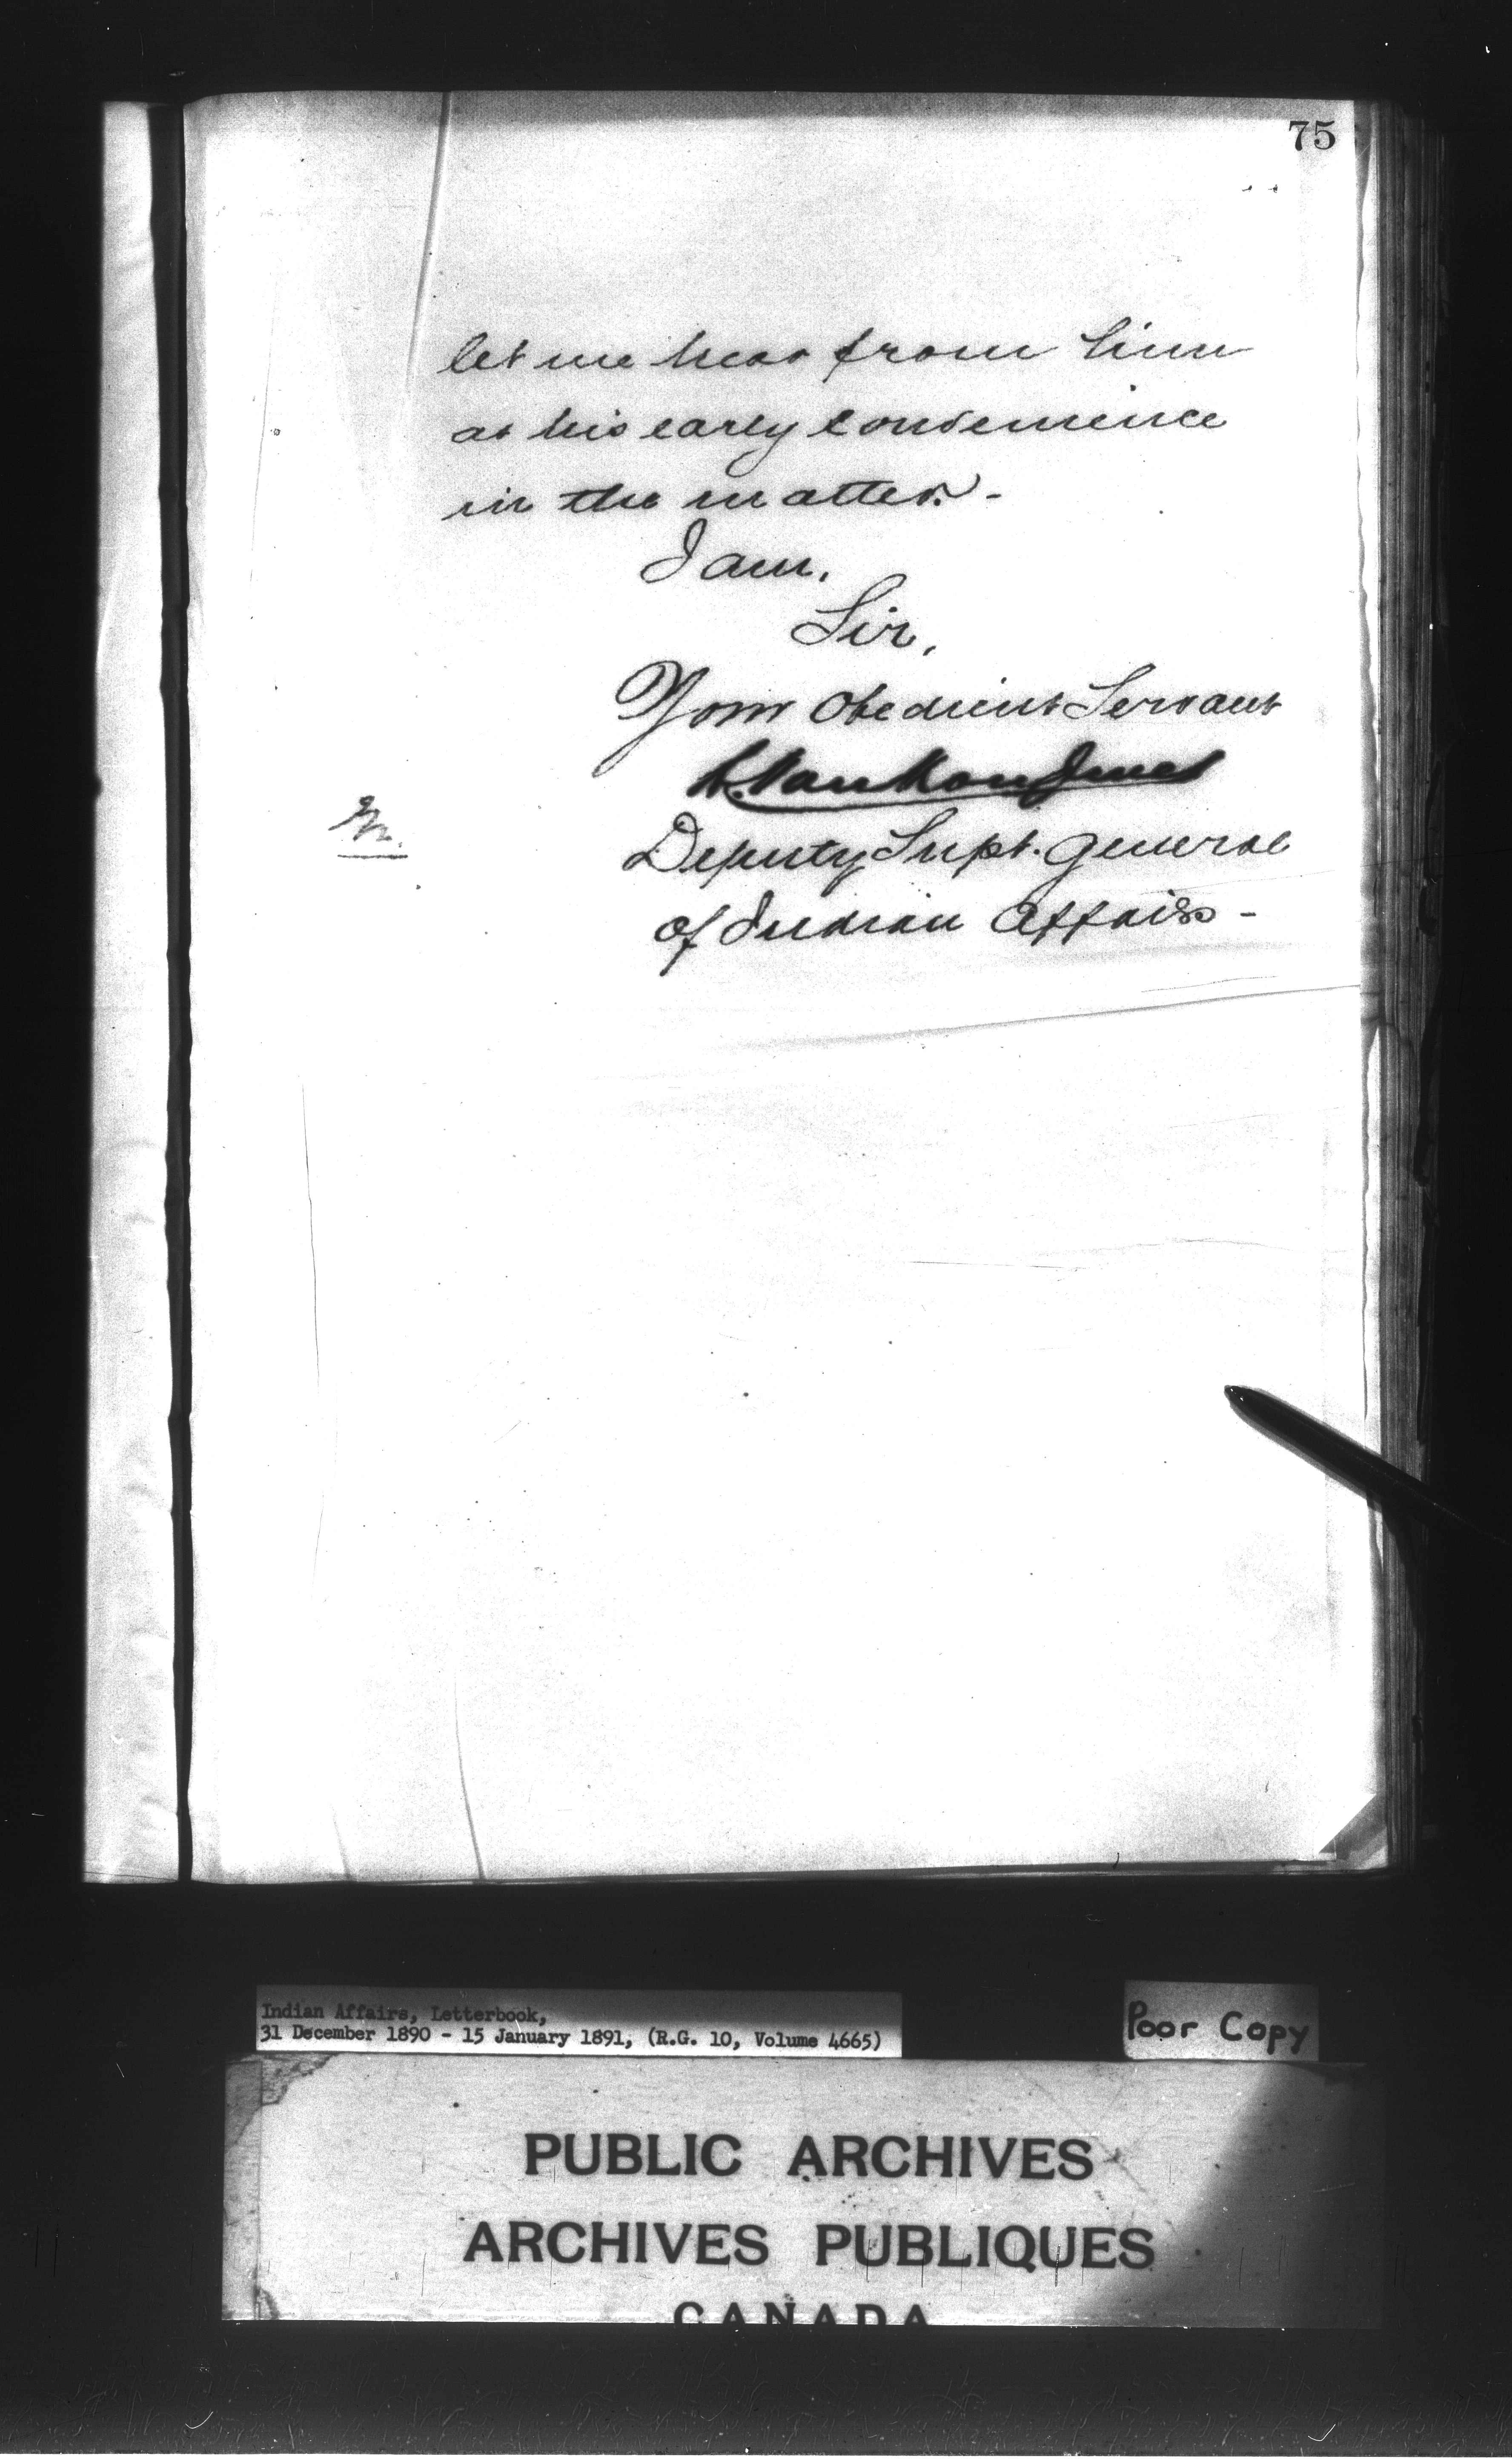 75
let me hear from him
at his early convenience
in the matter. -
I am,
Sir,
Your Obedient Servant
L. Vankoughnet
Deputy Supt. General
of Indian Affairs -
Indian Affairs, Letterbook,
31 December 1890 - 15 January 1891, (R.G. 10, Volume 4665)
Poor Copy
PUBLIC ARCHIVES
ARCHIVES PUBLIQUES
CANADA